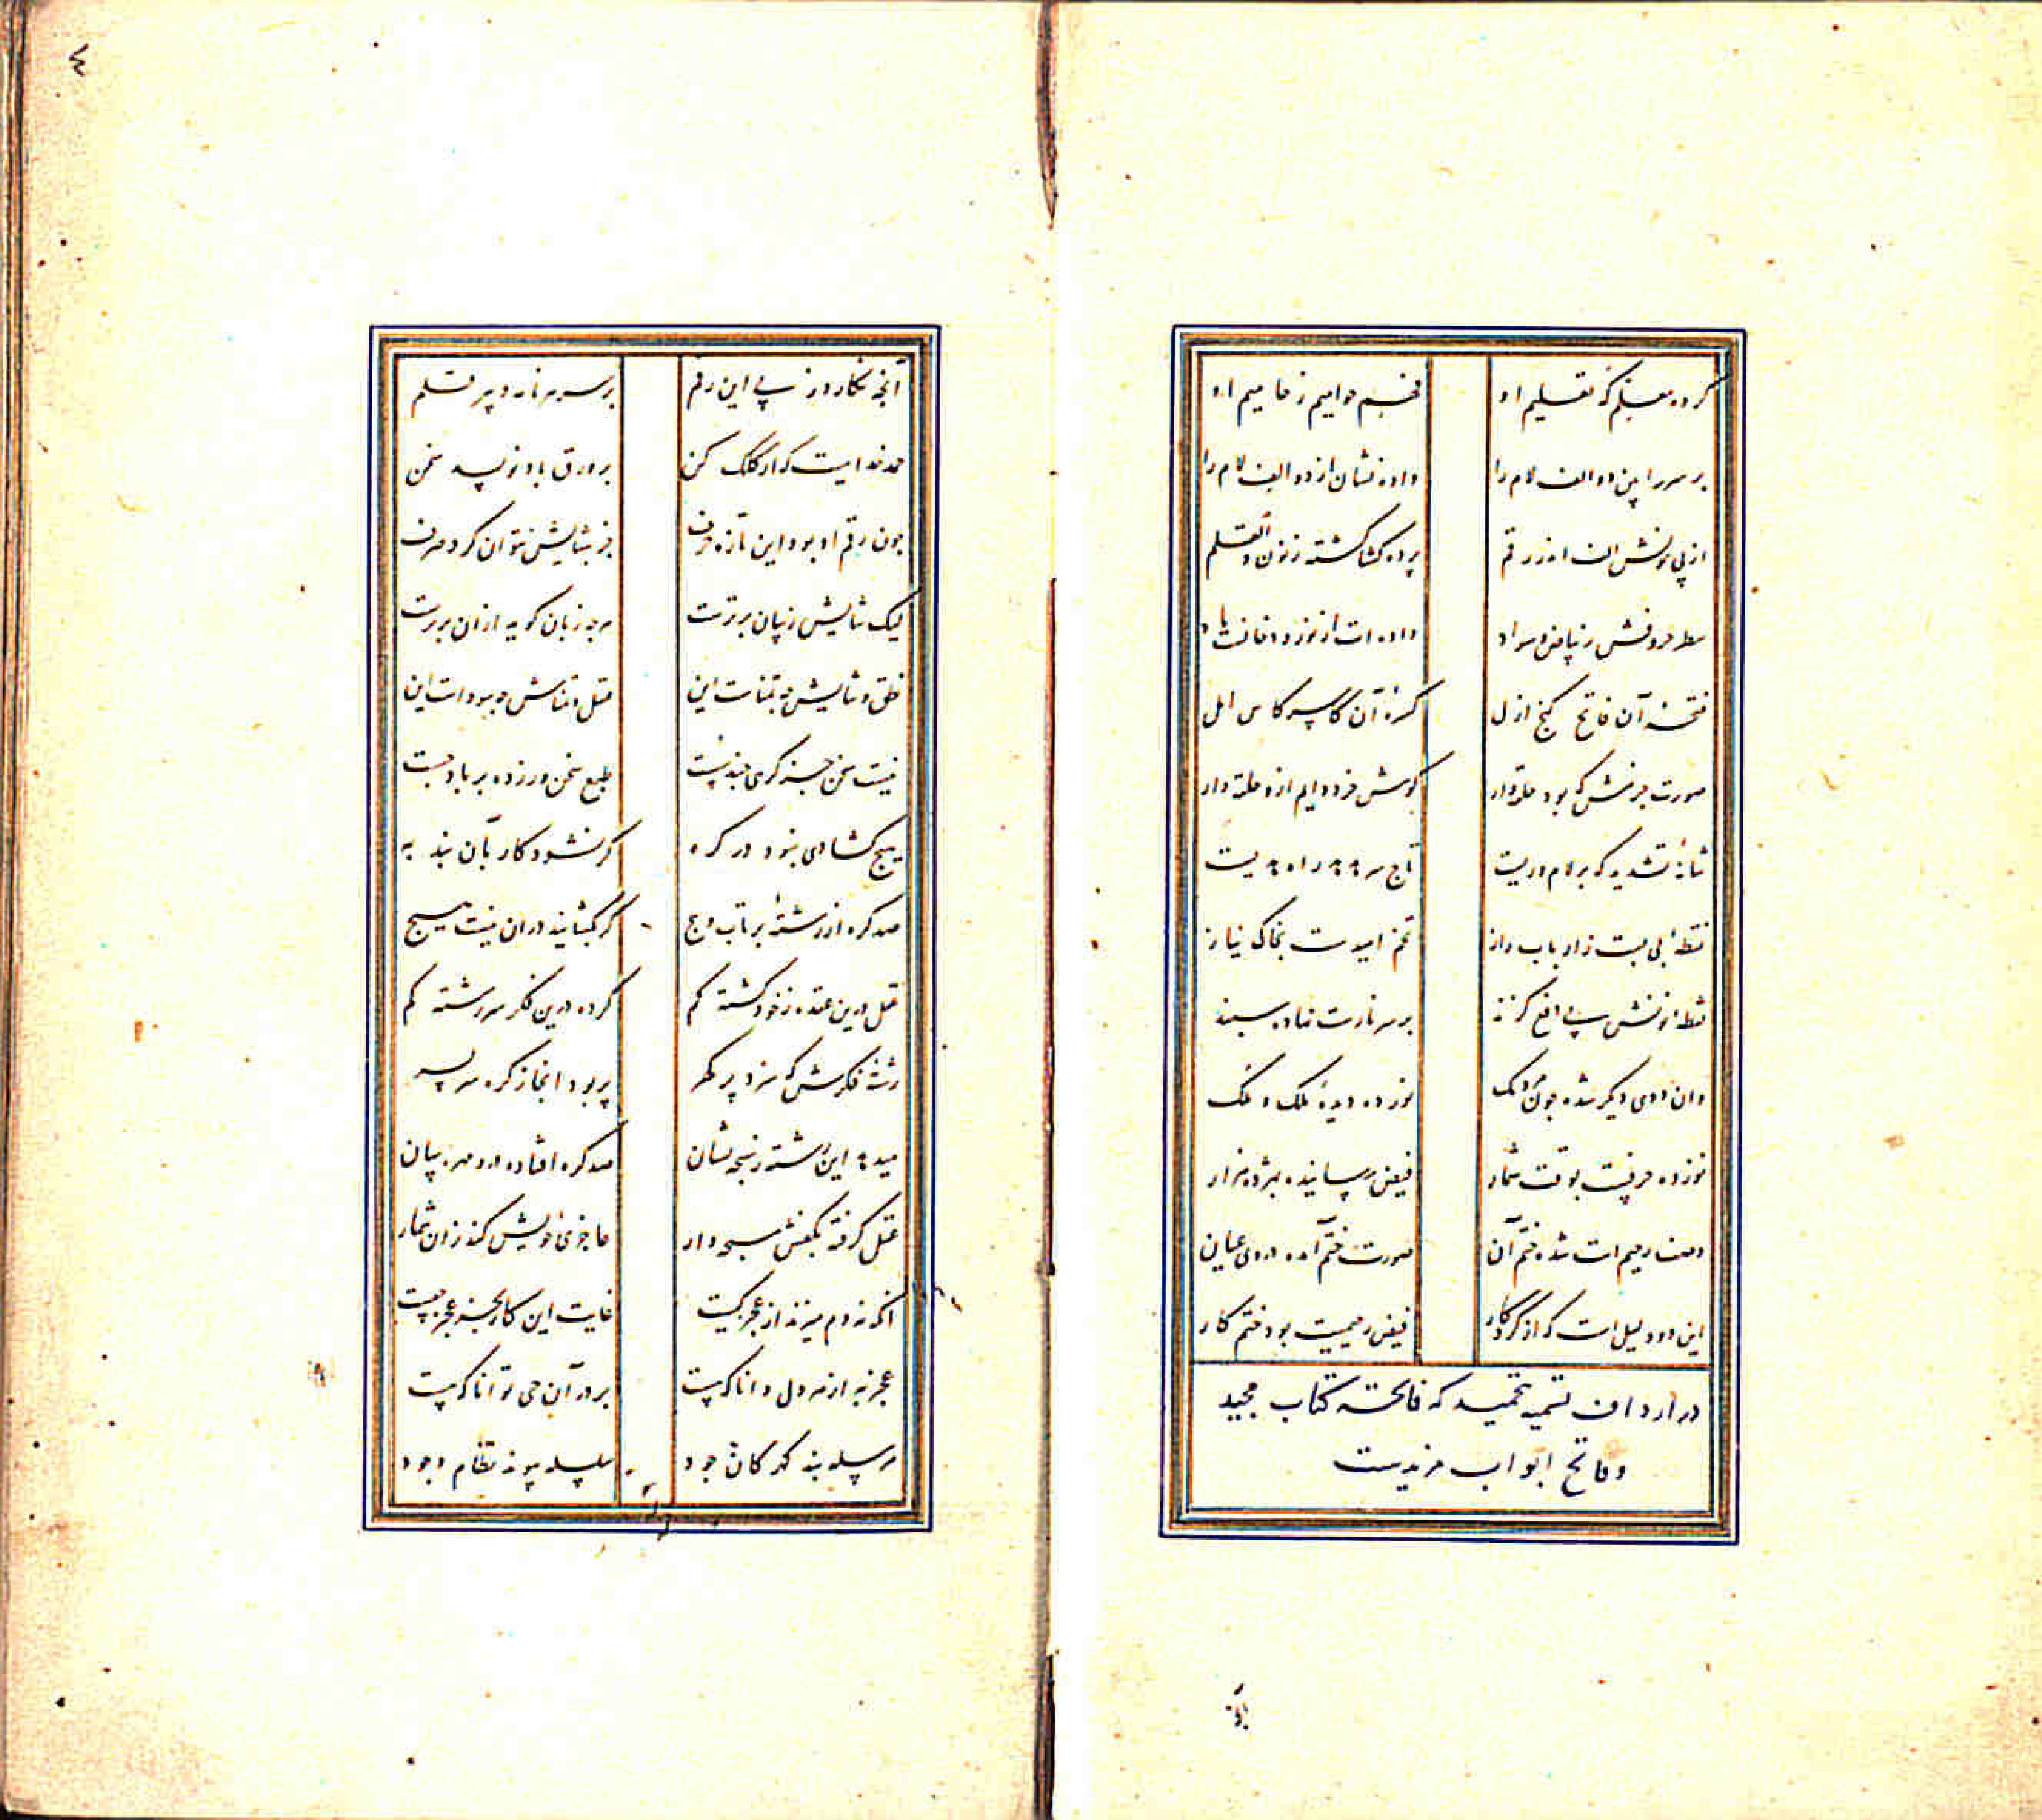 کرده معلم که تعلیم او فهم حوامیم ز حا میم او
بر سر را بین دو الف لام را داده نشان از دو الف لام را
از پی نونش الف اندر رقم پرده کشا گشته ز نون و القلم
سطر حروفش ز بیاض و سواد داده است از نوره
فتحه آن فاتح گنج ازل کسره آن کاسر کاس امل
صورت جزمش که بود حلقه‌وار گوش خرد دایم ازو حلقه‌دار
شانه تشدید که بر لام دریست تاج سر
نقطه بی بست ز ارباب راز تخم امیدست بخاک نیاز
نقطه نونش پی دفع گزند بر سر نارست نهاده سپند
وان دوی دیگر شده چون مردمک نوزده دیده ملک و فلک
نوزده حرفست بوقت شمار فیض رسانیده بهژده هزار
وصف رحیم است شده ختم آن صورت ختم آمده در وی عیان
این دو دلیل است که از کردگار فیض رحیمیست بود ختم کار
در ارداف تسمیه بتحمید که فاتحه کتاب مجید
و فاتح ابواب مزیدست
آنچه نگارد ز پی این رقم بر سر هر نامه دبیر قلم
حمد خدایست که از کلک کن بر ورق باد نویسد سخن
چون رقم او بود این تازه حرف جز بثنایش نتوان کرد صرف
لیک ثنایش ز بیان برترست هرچه زبان گوید از آن برترست
نطق و ثنایش چه تمناست این عقل و تمناش چه سوداست این
نیست سخن جز گرهی چند سست طبع سخن ور زده بر باد چست
هیچ گشادی نبود در گره گر نشود کار بآن بند به
صد گره از رشته پر تاب و پیچ گر بگشایند در آن نیست هیچ
عقل درین عقده ز خود گشته گم کرده درین فکر سررشته گم
رشته فکرش که سزد پر گهر پر بود اینجا ز گره سر بسر
میدهد این رشته ز سبحه نشان صد گره افتاده درو مهره سان
عقل گرفته بکفش سبحه وار عاجزی خویش کند زان شمار
آنکه نه دم میزند از عجز کیست غایت این کار بجز عجز چیست
عجز به از هر دل دانا که هست بر در آن حی توانا که هست
مرسله بند گهر کان جود سلسله پیوند نظام وجود